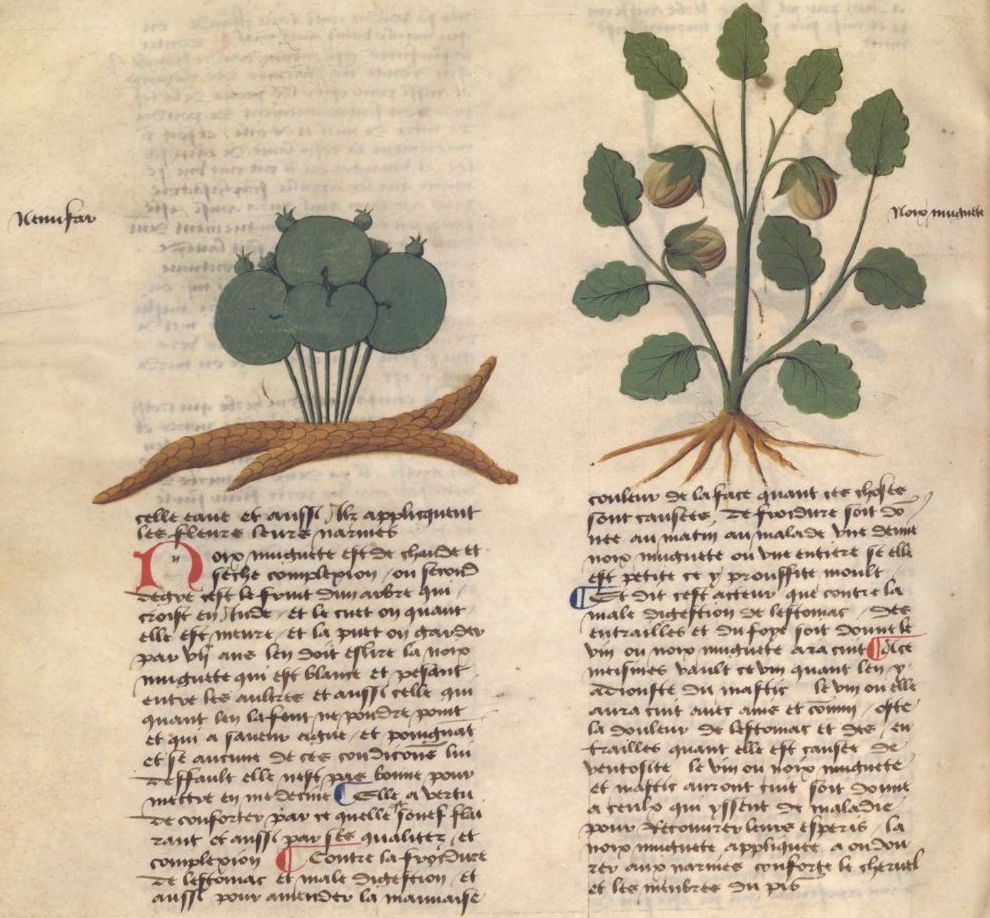 Nenufar
celle eaue et aussi silz applicquent
les fleurs a leurs narines
Noix muguete est de chaude et
seche complexion ou second
degre cest le fruit dun arbre qui
croist en Inde et le cuet on quant
elle est meure et la puet on garder
par vij ans len doit eslire la noix
muguete qui est blance et pesant
entre les aultres et aussi celle qui
quant len la fent ne pondre point
et qui a saveur eigue et poingnat
et se aucune de ces condicōns lui
deffault elle nest pas bonne pour
mettre en medecine Elle a vertu
de conforter par ce quelle souef flai
rant et aussi par ses qualitez et
complexion Contre la froidure
de lestomac et male digestion et
aussi pour amender la mauvaise
Noix muguete
couleur de la face quant ces choses
sont causees de froidure soit do
nee au matin au malade vne demie
noix muguete ou vne entiere se elle
est petite ce y prouffite moult
Et dit cest acteur que contre la
male digestion de lestomac des
entrailles et du foye soit donne le
vin ou noix muguete ara cuit Ice
meismes vault ce vin quant len y
adiouste du mastic le vin ou elle
aura cuit avec anis et cōmin oste
la douleur de lestomac et des en
trailles quant elle est causee de
ventosite le vin ou noix muguete
et mastic auront cuit soit donne
a ceulx qui yssent de maladie
pour recouvrer leurs esperis la
noix muguete appliquee a oudou
rer aux narines conforte le chervel
et les menbres du pis